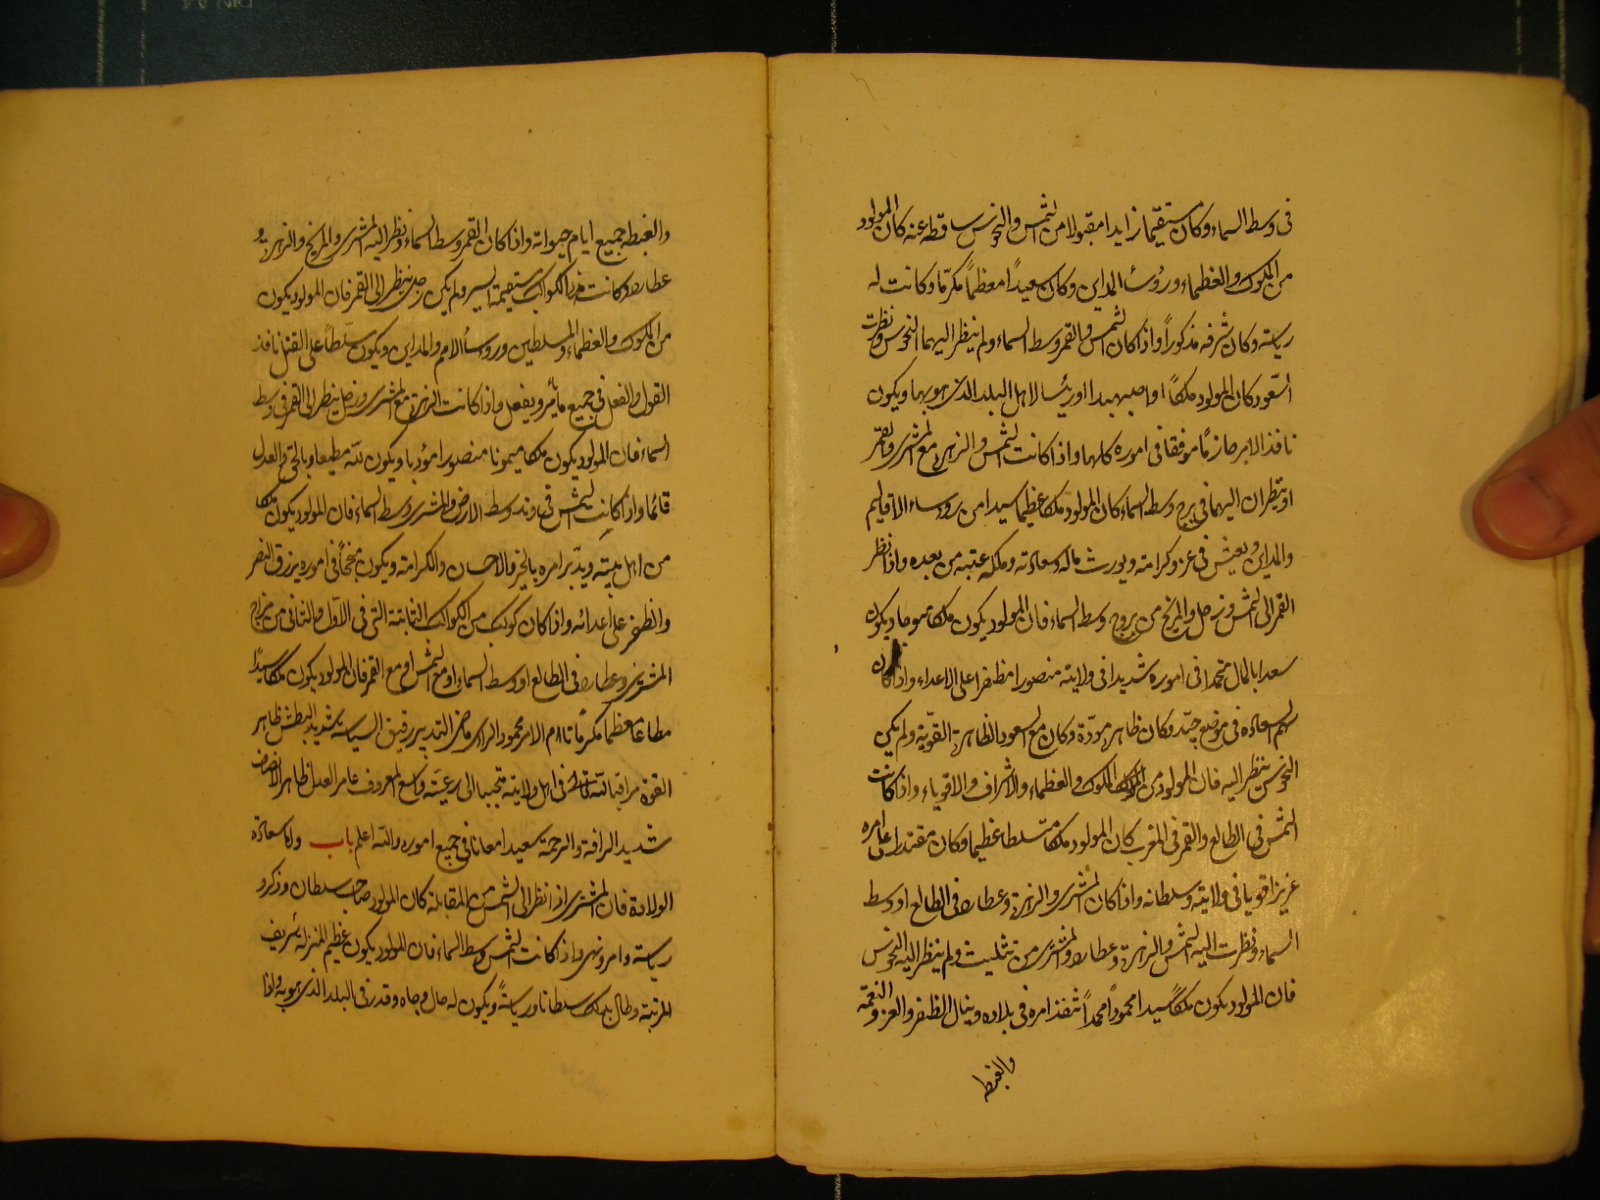 فى وسط السماء وكان مستقيما زايدا مقبولا من الشمس والنحوس ساقطه عنه كان المولود
من الملوك والعظماء ورؤسأ المداين وكان سعيداً معظماً مكرّما وكانت له
رياسته وكان شرفه مذكوراً واذا كان الشمس والقمر وسط السماء ولم ينظر اليهما النحوس ونظرت
السّعود كان المولود ملكاً او اصبهبدا او رئيسا لاهل البلد الذى هو بها ويكون
نافذ الامر حازمًا موفقا فى اموره كلها واذا كانت الشمس والزهرة مع المشترى والقمر
او ينظران اليهما فى برج وسط السماء كان المولود ملكا عظيما سيدا من روساء الاقليم
والمداين ويعيش فى عز وكرامته ويورث ماله وسعادته وملكه عقبه من بعده واذا نظر
القمر الى الشمس وزحل والمريخ من بروج وسط السماء فان المولود يكون ملكا ويكون
سعدا بالمال فى اموره شديدا فى ولايته منصورا مظفرا على الاعداء واذا كان
سهم السعادة فى موضع جيّد وكان ظاهر مودّة وكان مع السعود الظاهرة القويّة ولم يكن
النحوس ينظر اليه فان المولود من الملوك والعظماء والاشراف والاقوياء واذا كانت
الشمس فى الطالع والقمر فى المغرب كان المولود ملكا متسلطا عظيما وكان مقتدرا على امره
عزيزا قويا فى ولايته وسلطانه واذا كان المشترى والزهرة وعطارد فى الطالع او وسط
السماء ونظرت اليه الشمس والزهرة وعطارد والمشترى من تثليث ولم ينظر اليه النحوس
فان المولود يكون ملكاً سيدا محموداً ينفذ امره فى بلاده وينال الظفر والعز والنعمة
والغبطه
والغبطه جميع ايام حيواته واذا كان القمر وسط السماء ونظر اليه المشترى والمريخ والزهرة و
عطارد وكانت هذه الكواكب مستقيمة السير ولم يكن زحل ينظر الى القمر فان المولود يكون
من الملوك والعظماء والمسلطين ورؤسأ الامم والمداين ويكون مسلّطاً على القتل نافذ
القول والفعل فى جميع ما يأمر ويفعل واذا كانت الزهرة مع المشترى وزحل ينظر الى القمر فى وسط
السماء فان المولود يكون ملكا ميمونا منصورا مؤدبا ويكون للّه مطيعا وبالحق والعدل
قائما واذا كانت الشمس فى وتد وسط الارض والمشترى وسط السماء فان المولود يكون ملكا
من اهل بيته ويدبر امره بالخير والاحسان والكرامته ويكون فى اموره يرزق النصر
والظفر على اعدائه واذا كان كوكب من الكواكب الثابتة التى فى الاوّل والثانى من مزاج
المشترى وعطارد فى الطالع او وسط السماء او مع الشمس او مع القمر فان المولود يكون ملكا سيّدا
مطاعا معظما مكرمًا تام الامر محمود الراى التدبير رفيق السياسته شديد البطش ظاهر
القوة مراقبا للّه فى اهل ولايته متحببا الى رعيته واسع المعروف عامر العدل ظاهر الانصاف
شديد الرافة والرحمة سعيدا معانا فى جميع اموره واللّه اعلم باب واما سعادة
الولادة فان المشترى اذا نظر الى الشمس مع المقابلة كان المولود صاحب سلطان وذكر و
رياسته وامر ونهى واذا كانت الشمس وسط السماء فان المولود يكون عظيم المنزلة شريف
المرتبة سلطانا ورياسةً ويكون له مال وجاه وقدر فى البلد الذى هو به واذا